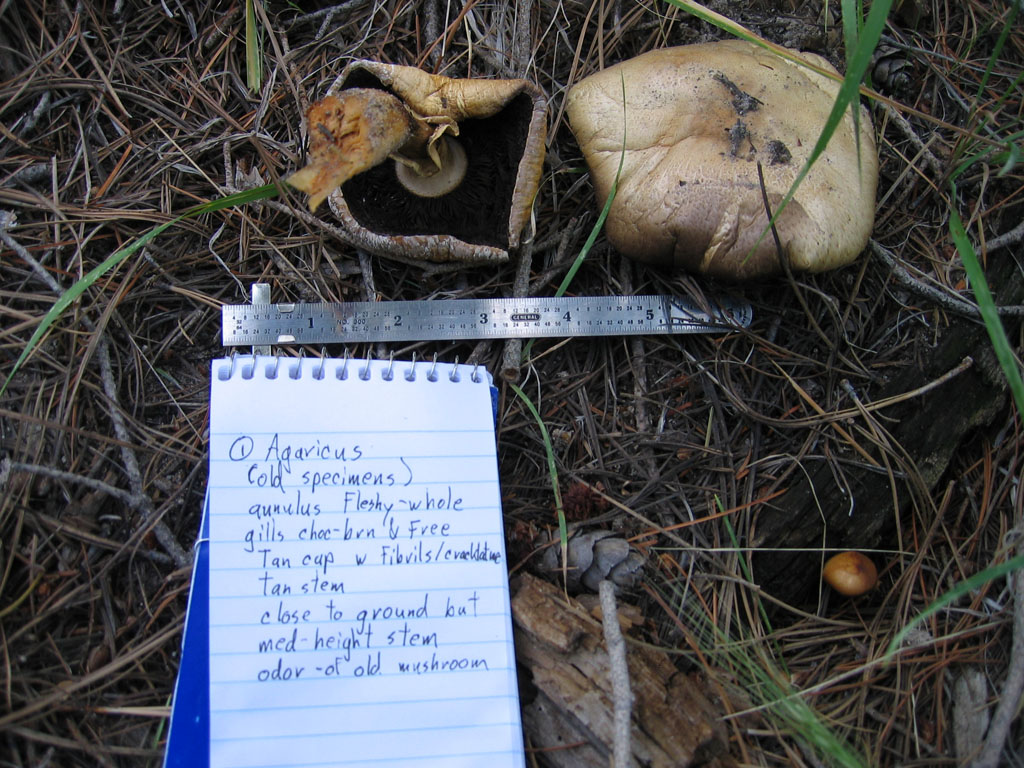 1 2 3 GENERAL 4 5
① Agaricus
(old specimens)
annulus Fleshy-whole
gills choc-brn & Free
Tan cap w Fibrils/
tan stem
close to ground but
med-height stem
odor-of old mushroom